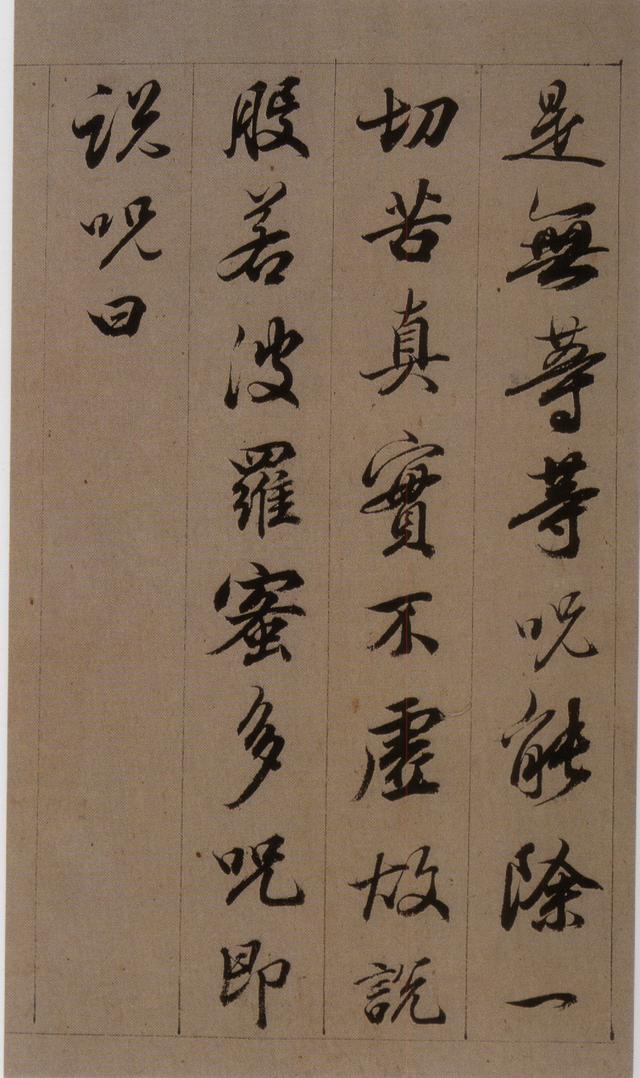 是無等等呪能除一
切苦真實不虛故説
般若波羅蜜多呪即
説呪曰